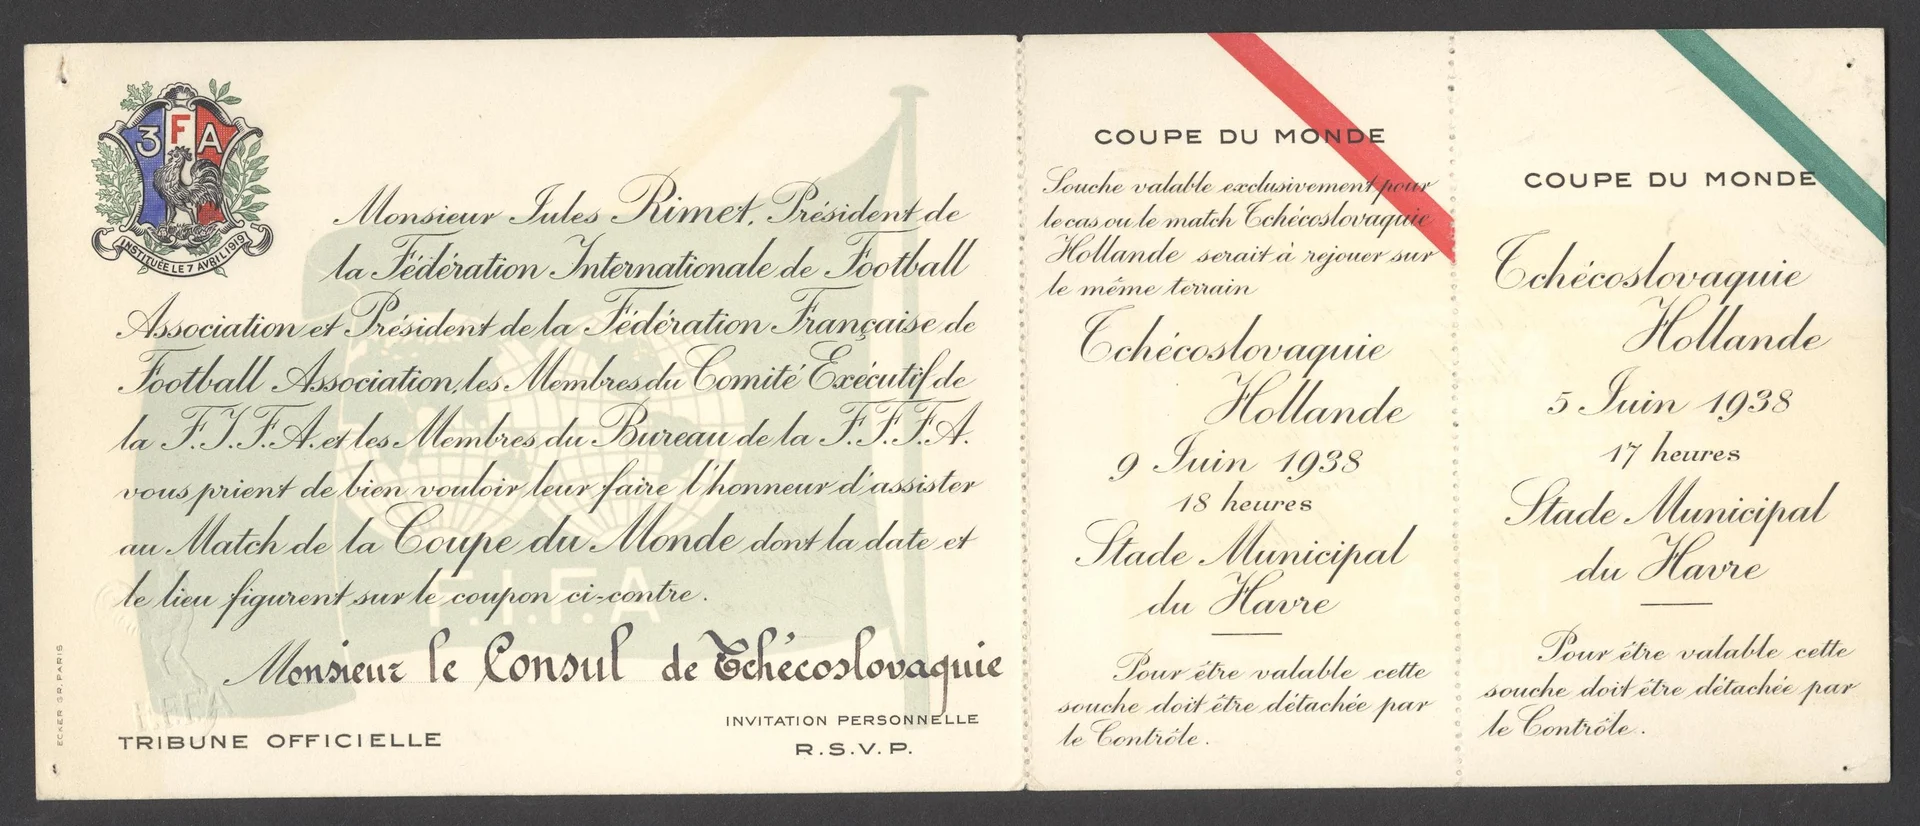 3 F A
INSTITUÉE LE 7 AVRIL 1919
Monsieur Jules Rimet, Président de
la Fédération Internationale de Football
Association et Président de la Fédération Française de
Football Association, les Membres du Comité Exécutif de
la F.I.F.A. et les Membres du Bureau de la F.F.F.A.
vous prient de bien vouloir leur faire l'honneur d'assister
au Match de la Coupe du Monde dont la date et
le lieu figurent sur le coupon ci-contre.
F.I.F.A
Monsieur le Consul de Tchécoslovaquie
INVITATION PERSONNELLE
TRIBUNE OFFICIELLE
R.S.V.P.
ECKER GR. PARIS
COUPE DU MONDE
Souche valable exclusivement pour
le cas ou le match Tchécoslovaquie
Hollande serait à rejouer sur
le même terrain
Tchécoslovaquie
Hollande
9 Juin 1938
18 heures
Stade Municipal
du Havre
Pour être valable cette
souche doit être détachée par
le Contrôle.
COUPE DU MONDE
Tchécoslovaquie
Hollande
5 Juin 1938
17 heures
Stade Municipal
du Havre
Pour être valable cette
souche doit être détachée par
le Contrôle.